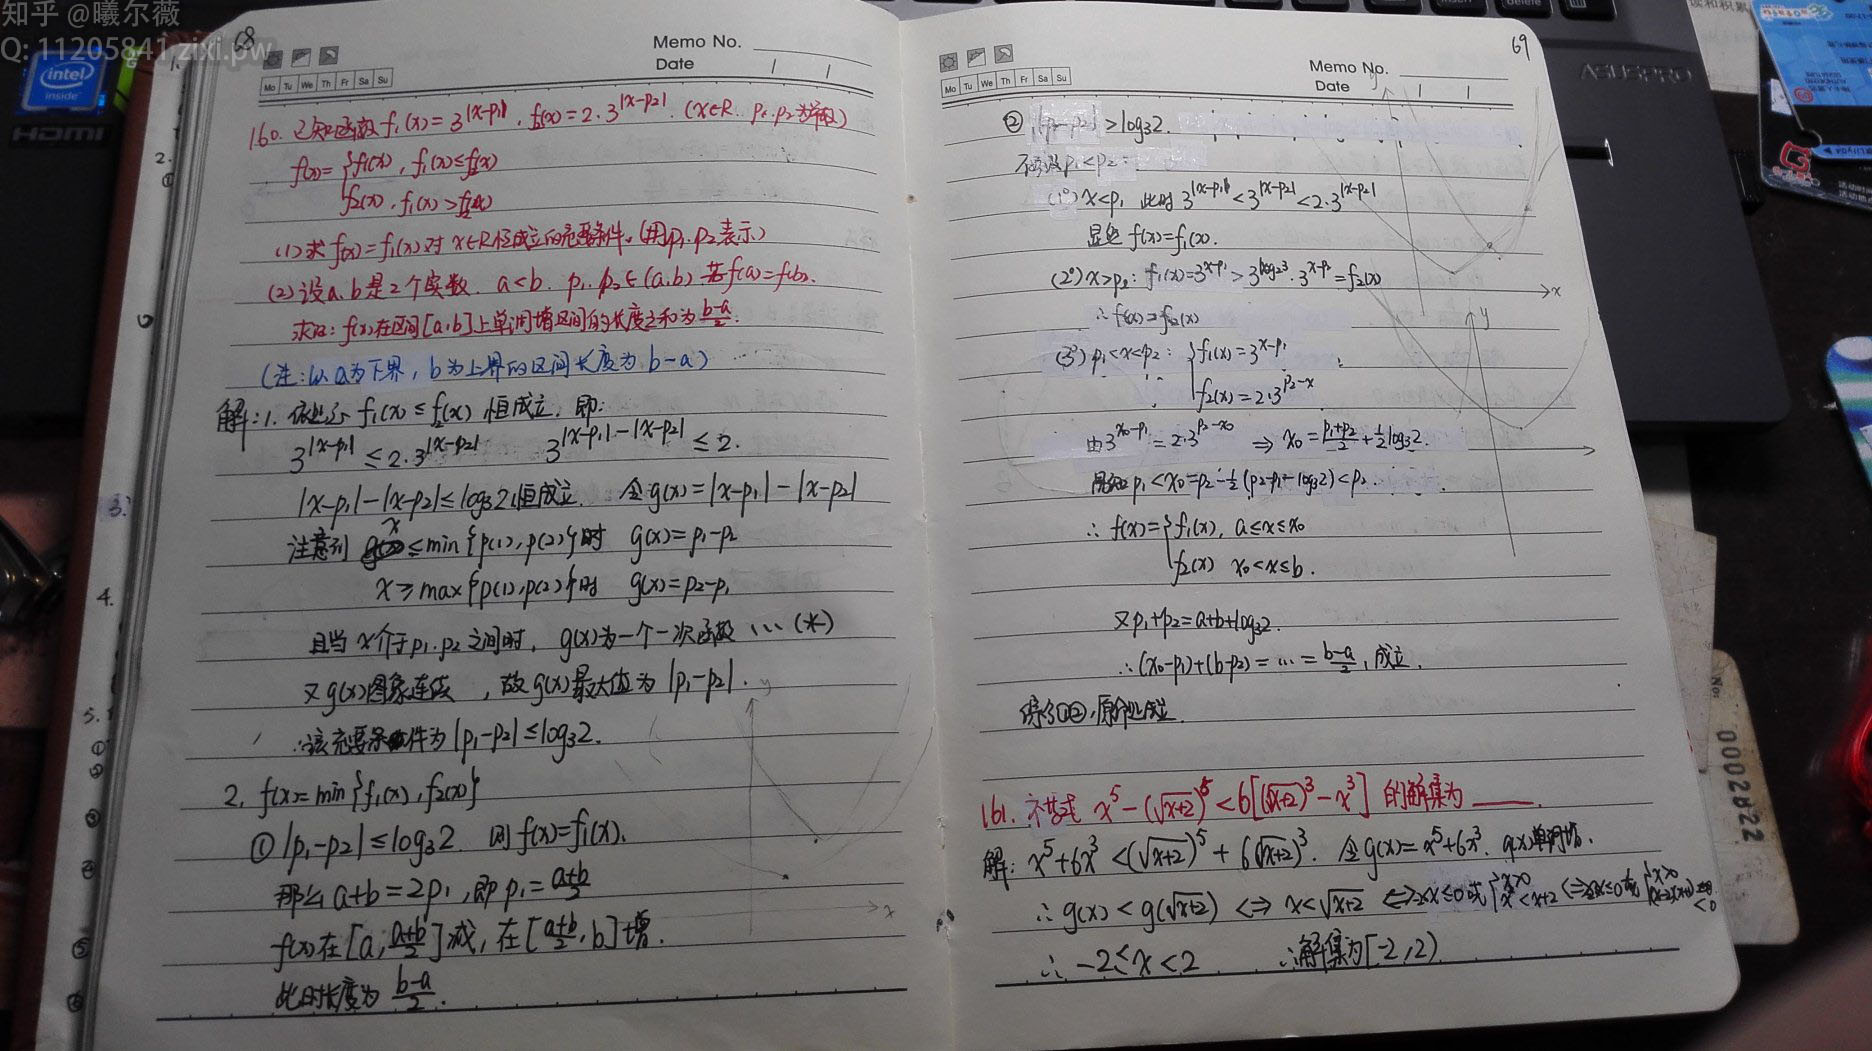 知乎 @曦尔薇
Q: 11205841.zixi.pw
intel
inside
HDMI
68
Memo No.
Date
Mo Tu We Th Fr Sa Su
160. 已知函数f₁(x)=3^|x-p₁|, f₂(x)=2·3^|x-p₂|. (x∈R. p₁.p₂为常数)
f(x)={f₁(x), f₁(x)≤f₂(x)
f₂(x), f₁(x)>f₂(x)
(1)求f(x)=f₁(x)对x∈R恒成立的充要条件。(用p₁.p₂表示)
(2)设a.b是2个实数. a<b. p₁.p₂∈(a,b) 若f(a)=f(b).
求证: f(x)在区间[a,b]上单调增区间的长度之和为(b-a)/2.
(注:以a为下界, b为上界的区间长度为b-a)
解: 1. 依题示 f₁(x)≤f₂(x) 恒成立, 即:
3^|x-p₁| ≤2·3^|x-p₂| 3^|x-p₁|-|x-p₂| ≤2.
|x-p₁|-|x-p₂|≤log₃2恒成立. 令g(x)=|x-p₁|-|x-p₂|
注意到 x≤min{p(1),p(2)}时 g(x)=p₁-p₂
x≥max{p(1),p(2)}时 g(x)=p₂-p₁
且当x介于p₁.p₂之间时, g(x)为一个一次函数…(*)
又g(x)图象连续, 故g(x)最大值为|p₁-p₂|.
∴该充要条件为|p₁-p₂|≤log₃2.
2. f(x)=min{f₁(x),f₂(x)}
①|p₁-p₂|≤log₃2. 则f(x)=f₁(x).
那么a+b=2p₁,即p₁=(a+b)/2
f(x)在[a,(a+b)/2]减,在[(a+b)/2,b]增.
此时长度为(b-a)/2.
y
x
69
Memo No.
Date
Mo Tu We Th Fr Sa Su
②|p₁-p₂|>log₃2.
不妨设p₁<p₂:
(1°)x<p₁ 此时3^|x-p₁|<3^|x-p₂|<2·3^|x-p₂|
显然f(x)=f₁(x).
(2°)x>p₂: f₁(x)=3^x-p₁>3^log₂3·3^x-p₂=f₂(x)
∴f(x)=f₂(x)
(3°)p₁<x<p₂: {f₁(x)=3^x-p₁
f₂(x)=2·3^p₂-x
由3^x₀-p₁=2·3^p₂-x₀ ⇒x₀=(p₁+p₂)/2+½log₃2.
易知p₁<x₀=p₂-½(p₂-p₁-log₃2)<p₂.
∴f(x)={f₁(x), a≤x≤x₀
f₂(x) x₀<x≤b.
又p₁+p₂=a+b+log₃2.
∴(x₀-p₁)+(b-p₂)=…=(b-a)/2,成立.
综合①②,原命题成立.
y
x
y
161. 不等式 x⁵-(√x+2)⁵<6[(√x+2)³-x³] 的解集为____.
解: x⁵+6x³<(√x+2)⁵+6(√x+2)³. 令g(x)=x⁵+6x³. g(x)单调增.
∴g(x)<g(√x+2) ⇔x<√x+2 ⇔-2≤x≤0或{x>0 x²<x+2 ⇔-2≤x≤0或{x>0 (x-2)(x+1)<0
∴-2≤x<2 ∴解集为[-2,2)
ASUSPRO
Insert
Delete
No:
0002822